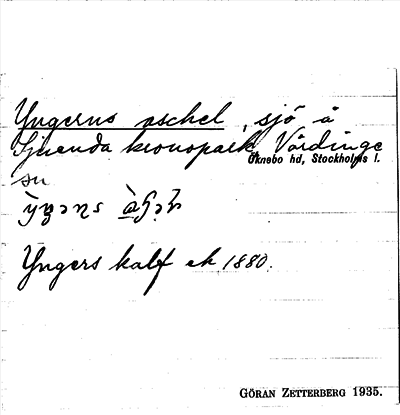 Yngerns aschel, sjö å
Sjuenda kronopark, Vårdinge
Öknebo hd, Stockholms l.
sn
Yngers kalf ek 1880.
GÖRAN ZETTERBERG 1935.